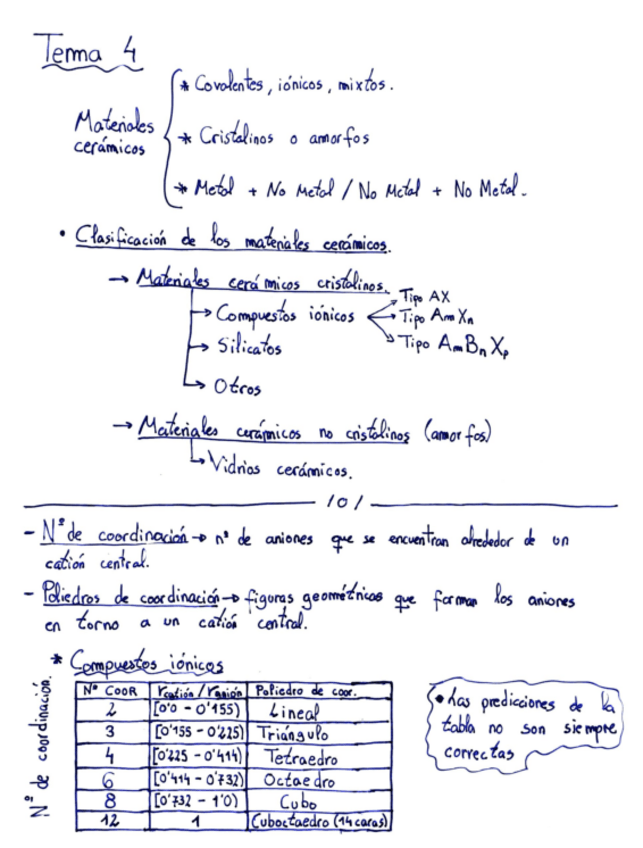 Tema 4
Materiales
cerámicos
* Covalentes, iónicos, mixtos.
* Cristalinos o amorfos
* Metal + No Metal / No Metal + No Metal.
• Clasificación de los materiales cerámicos.
→ Materiales cerámicos cristalinos.
→ Compuestos iónicos
Tipo AX
Tipo AmXn
Tipo AmBnXp
→ Silicatos
→ Otros
→ Materiales cerámicos no cristalinos (amorfos)
→ Vidrios cerámicos.
/0/
- Nº de coordinación → nº de aniones que se encuentran alrededor de un
catión central.
- Poliedros de coordinación → figuras geométricas que forman los aniones
en torno a un catión central.
* Compuestos iónicos
Nº de coordinación.
Nº COOR rcatión/ranión Poliedro de coor.
2 [0'0 - 0'155) Lineal
3 [0'155 - 0'225) Triángulo
4 [0'225 - 0'414) Tetraedro
6 [0'414 - 0'732) Octaedro
8 [0'732 - 1'0) Cubo
12 1 Cuboctaedro (14 caras)
• Las predicciones de la
tabla no son siempre
correctas